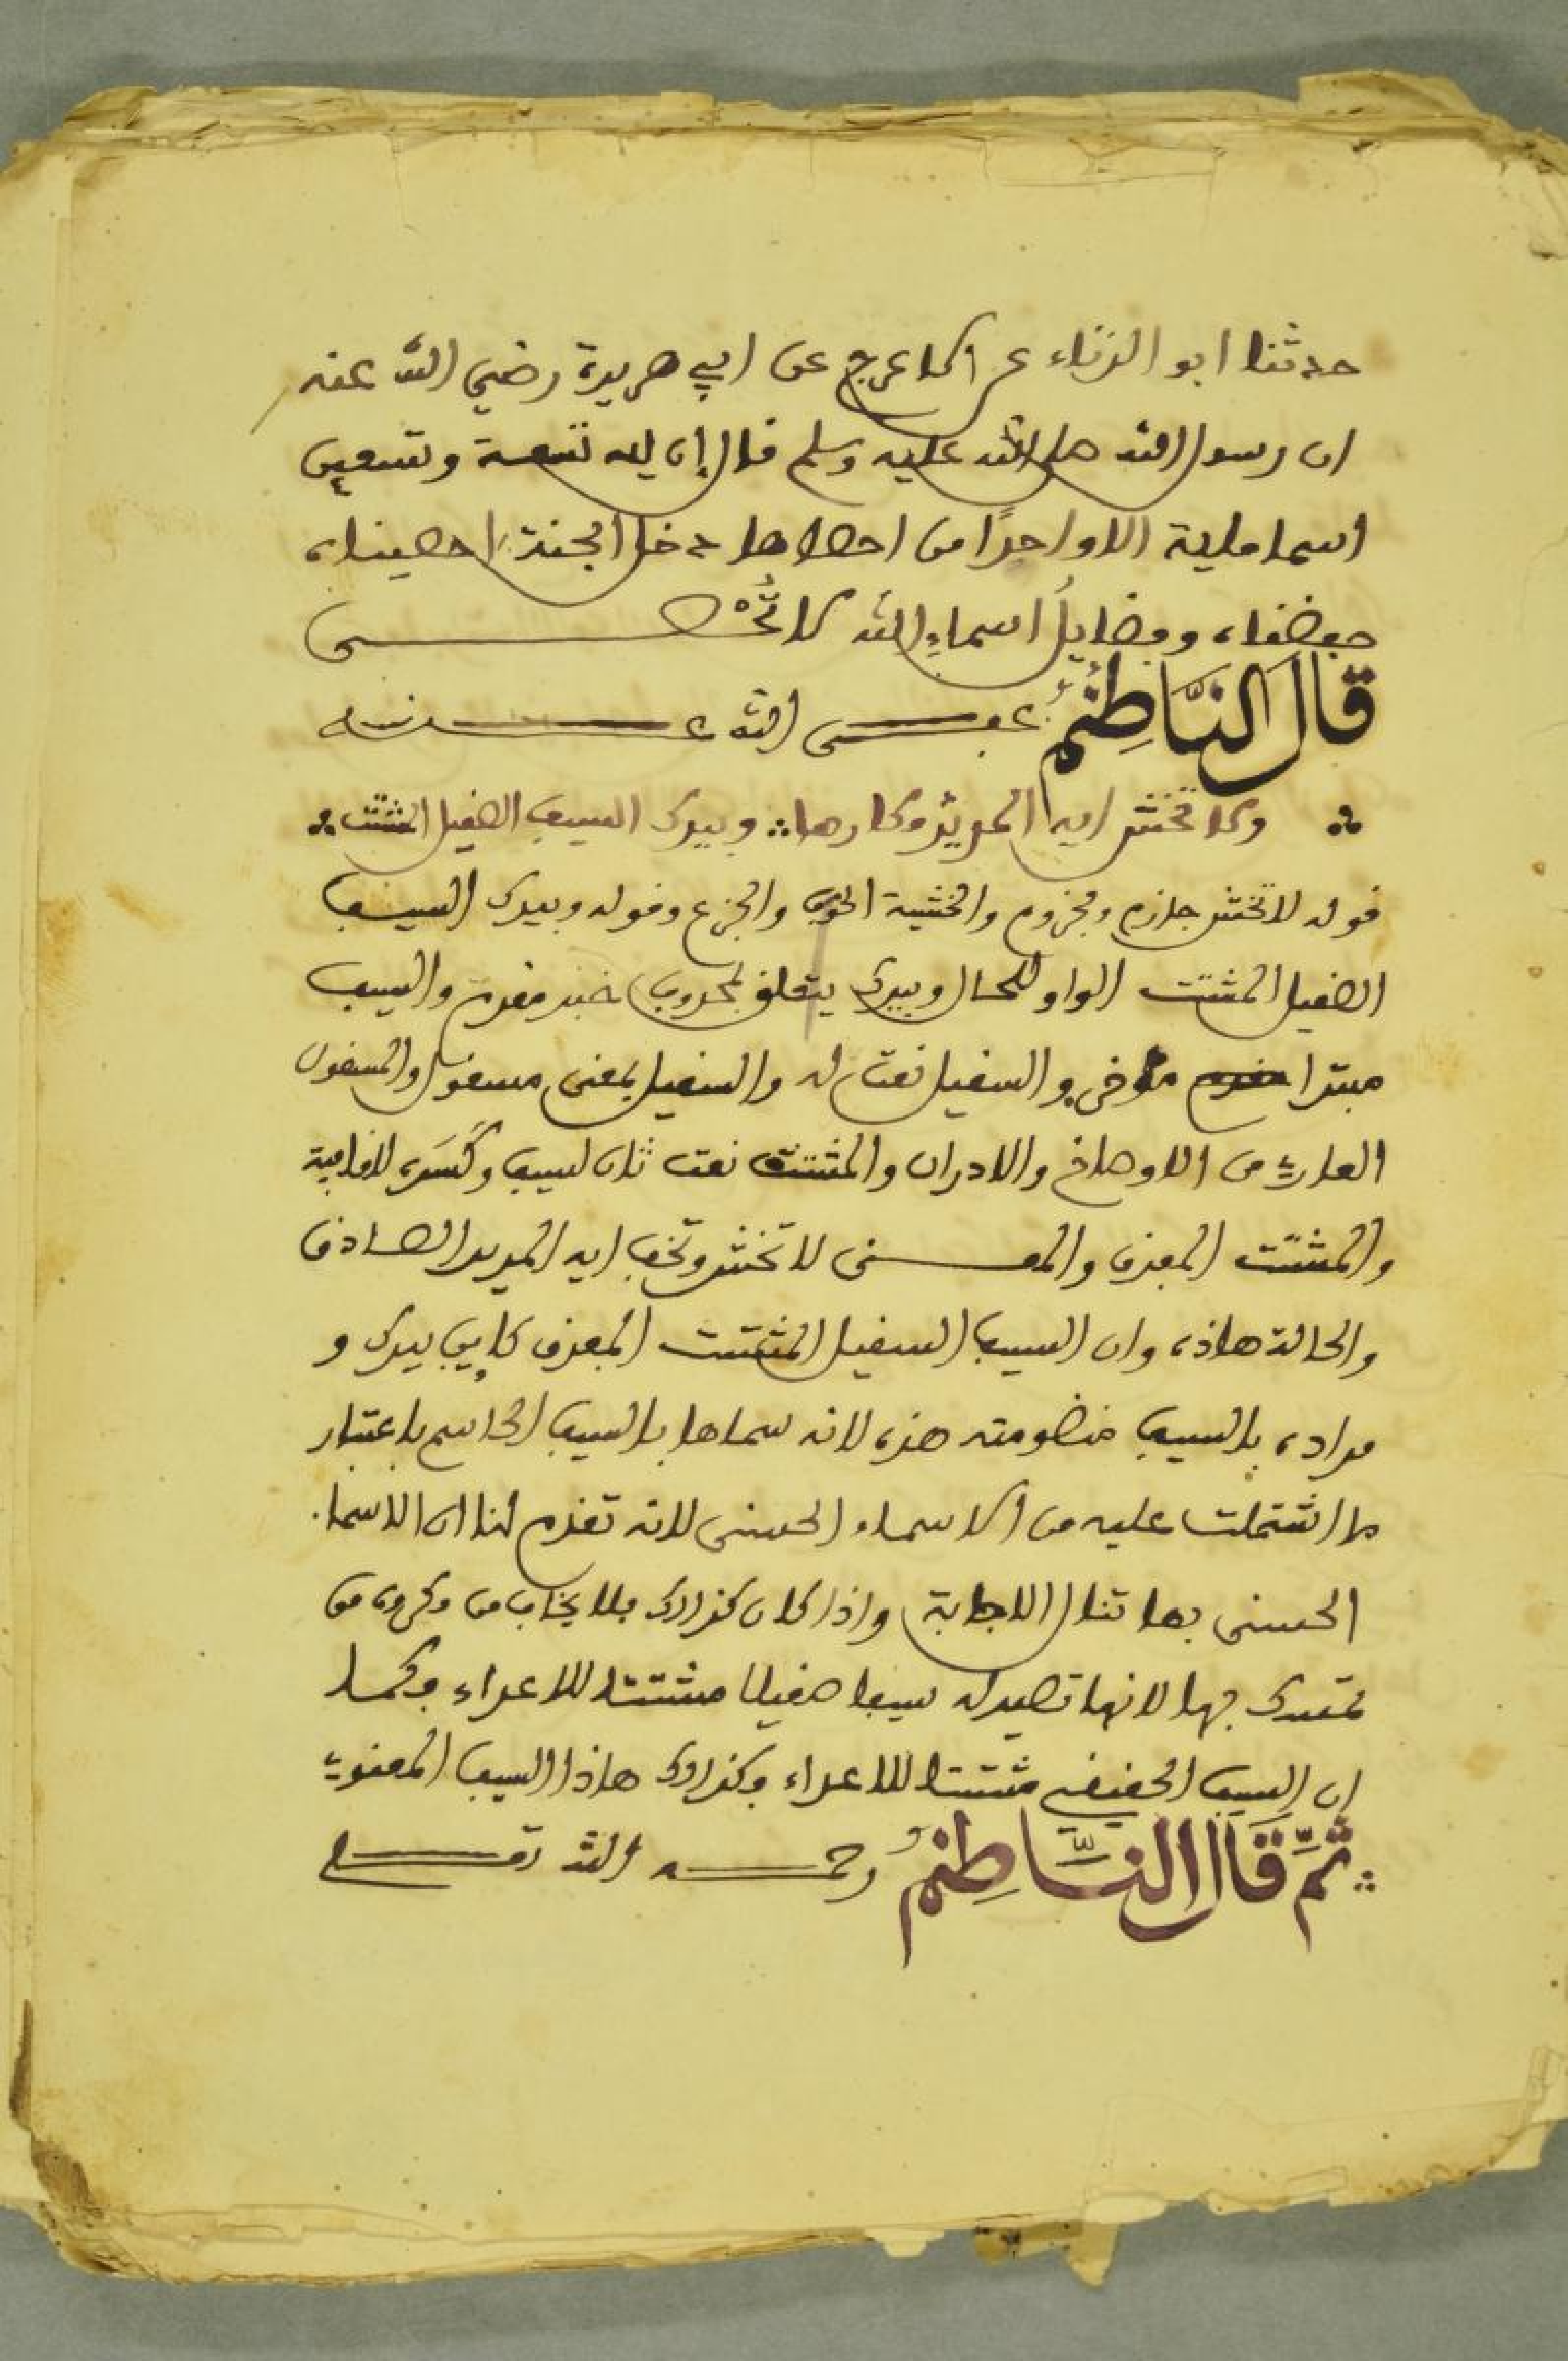 حدثنا ابو الزناد عن الاعرج عن ابي هريرة رضي الله عنه
ان رسول الله صلى الله عليه وسلم قال إن لله تسعة وتسعين
اسما ماية الا واحدًا من احصاها دخل الجنة احصيناه
حفظناه وفضايلُ اسماءِ الله لا تُحْصى
قَالَ النَّاظِمُ عفى الله عنه
ولا تخش ايه المريد مكارها وبيدك السيف الصقيل المشتت
قوله لا تخش جازم ومجزوم والخشية الخوف والجزع وقوله وبيدك السيف
الصقيل المشتت الواو للحال وبيدك يتعلق بمحذوف خبر مقدم والسيف
مبتدا مقدم موخر والسقيل نعت له والسقيل بمعنى مسقول والمسقول
العاري من الاوصاخ والادران والمشتت نعت ثان لسيف وكَسَره للقافية
والمشتت المفرق والمعنى لا تخش وتخف ايه المريد الصادق
والحالة هاذه وان السيف السقيل المشتت المفرق كايف بيدك و
مراده بالسيف منظومته هذه لانه سماها بالسيف الحاسم باعتبار
ما اشتملت عليه من الاسماء الحسنى لانه تقدم لنا ان الاسما
الحسنى بها تنال الاجابة واذا كان كذالك فلا يخاف من مكروه من
تمسك بها لانها تصير له سيفا صقيلا مشتتا للاعداء فكما
ان السيف الحقيقي مشتتا للاعداء فكذالك هاذا السيف المعنوي
ثمَّ قَالَ النَّاظِمُ رحمه الله تعلى